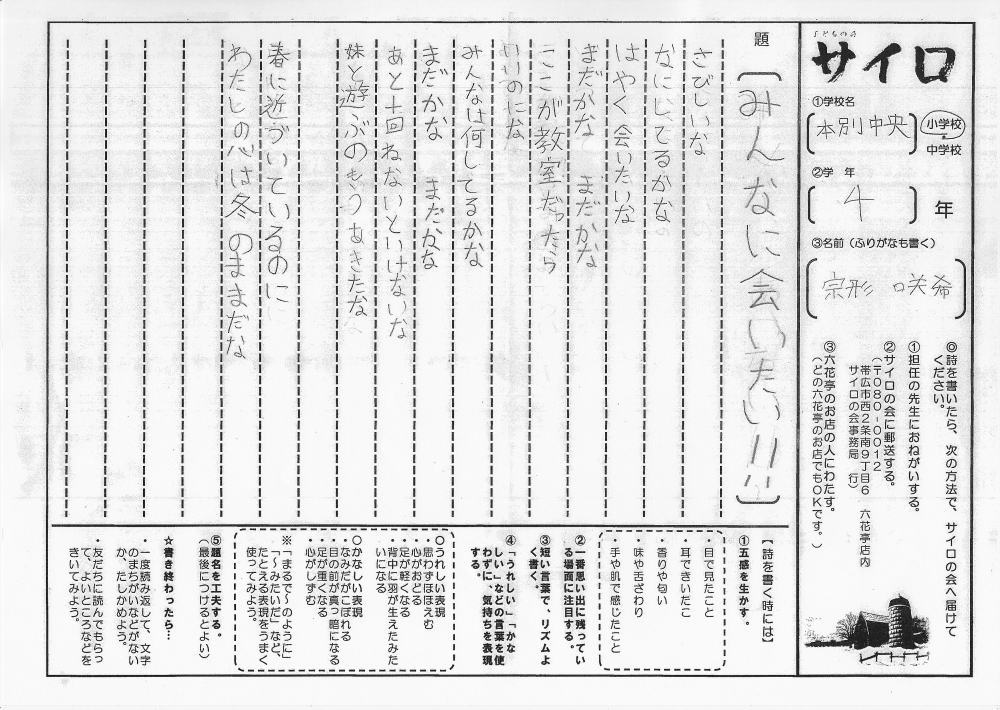 子どもの詩
サイロ
①学校名
本別中央
小学校
・
中学校
②学　年
4
年
③名前（ふりがなも書く）
宗形　咲希
◎詩を書いたら、次の方法で、サイロの会へ届けて
ください。
①担任の先生におねがいする。
②サイロの会に郵送する。
（〒080-0012
帯広市西2条南9丁目6　六花亭店内
サイロの会事務局　行）
③六花亭のお店の人にわたす。
（どの六花亭のお店でもOKです。）
題
みんなに会いたい!!
さびしいな
なにしてるかな
はやく会いたいな
まだかな　まだかな
ここが教室だったら
いいのにな
みんなは何してるかな
まだかな　まだかな
あと十回ねないといけないな
妹と遊ぶのもうあきたな
春に近づいているのに
わたしの心は冬のままだな
【詩を書く時には】
①五感を生かす。
・目で見たこと
・耳できいたこと
・香りや匂い
・味や舌ざわり
・手や肌で感じたこと
②一番思い出に残ってい
る場面に注目する。
③短い言葉で、リズムよ
く書く。
④「うれしい」「かな
しい」などの言葉を使
わずに、気持ちを表現
する。
○うれしい表現
・思わずほほえむ
・心がおどる
・足が軽くなる
・背中に羽が生えたみた
いになる
○かなしい表現
・なみだがこぼれる
・目の前が真っ暗になる
・足が重くなる
・心がしずむ
※「まるで〜のように」
「〜みたいだ」など、
たとえる表現をうまく
使ってみよう。
⑤題名を工夫する。
（最後につけるとよい）
☆書き終わったら…
・一度読み返して、文字
のまちがいなどがない
か、たしかめよう。
・友だちに読んでもらっ
て、よいところなどを
きいてみよう。